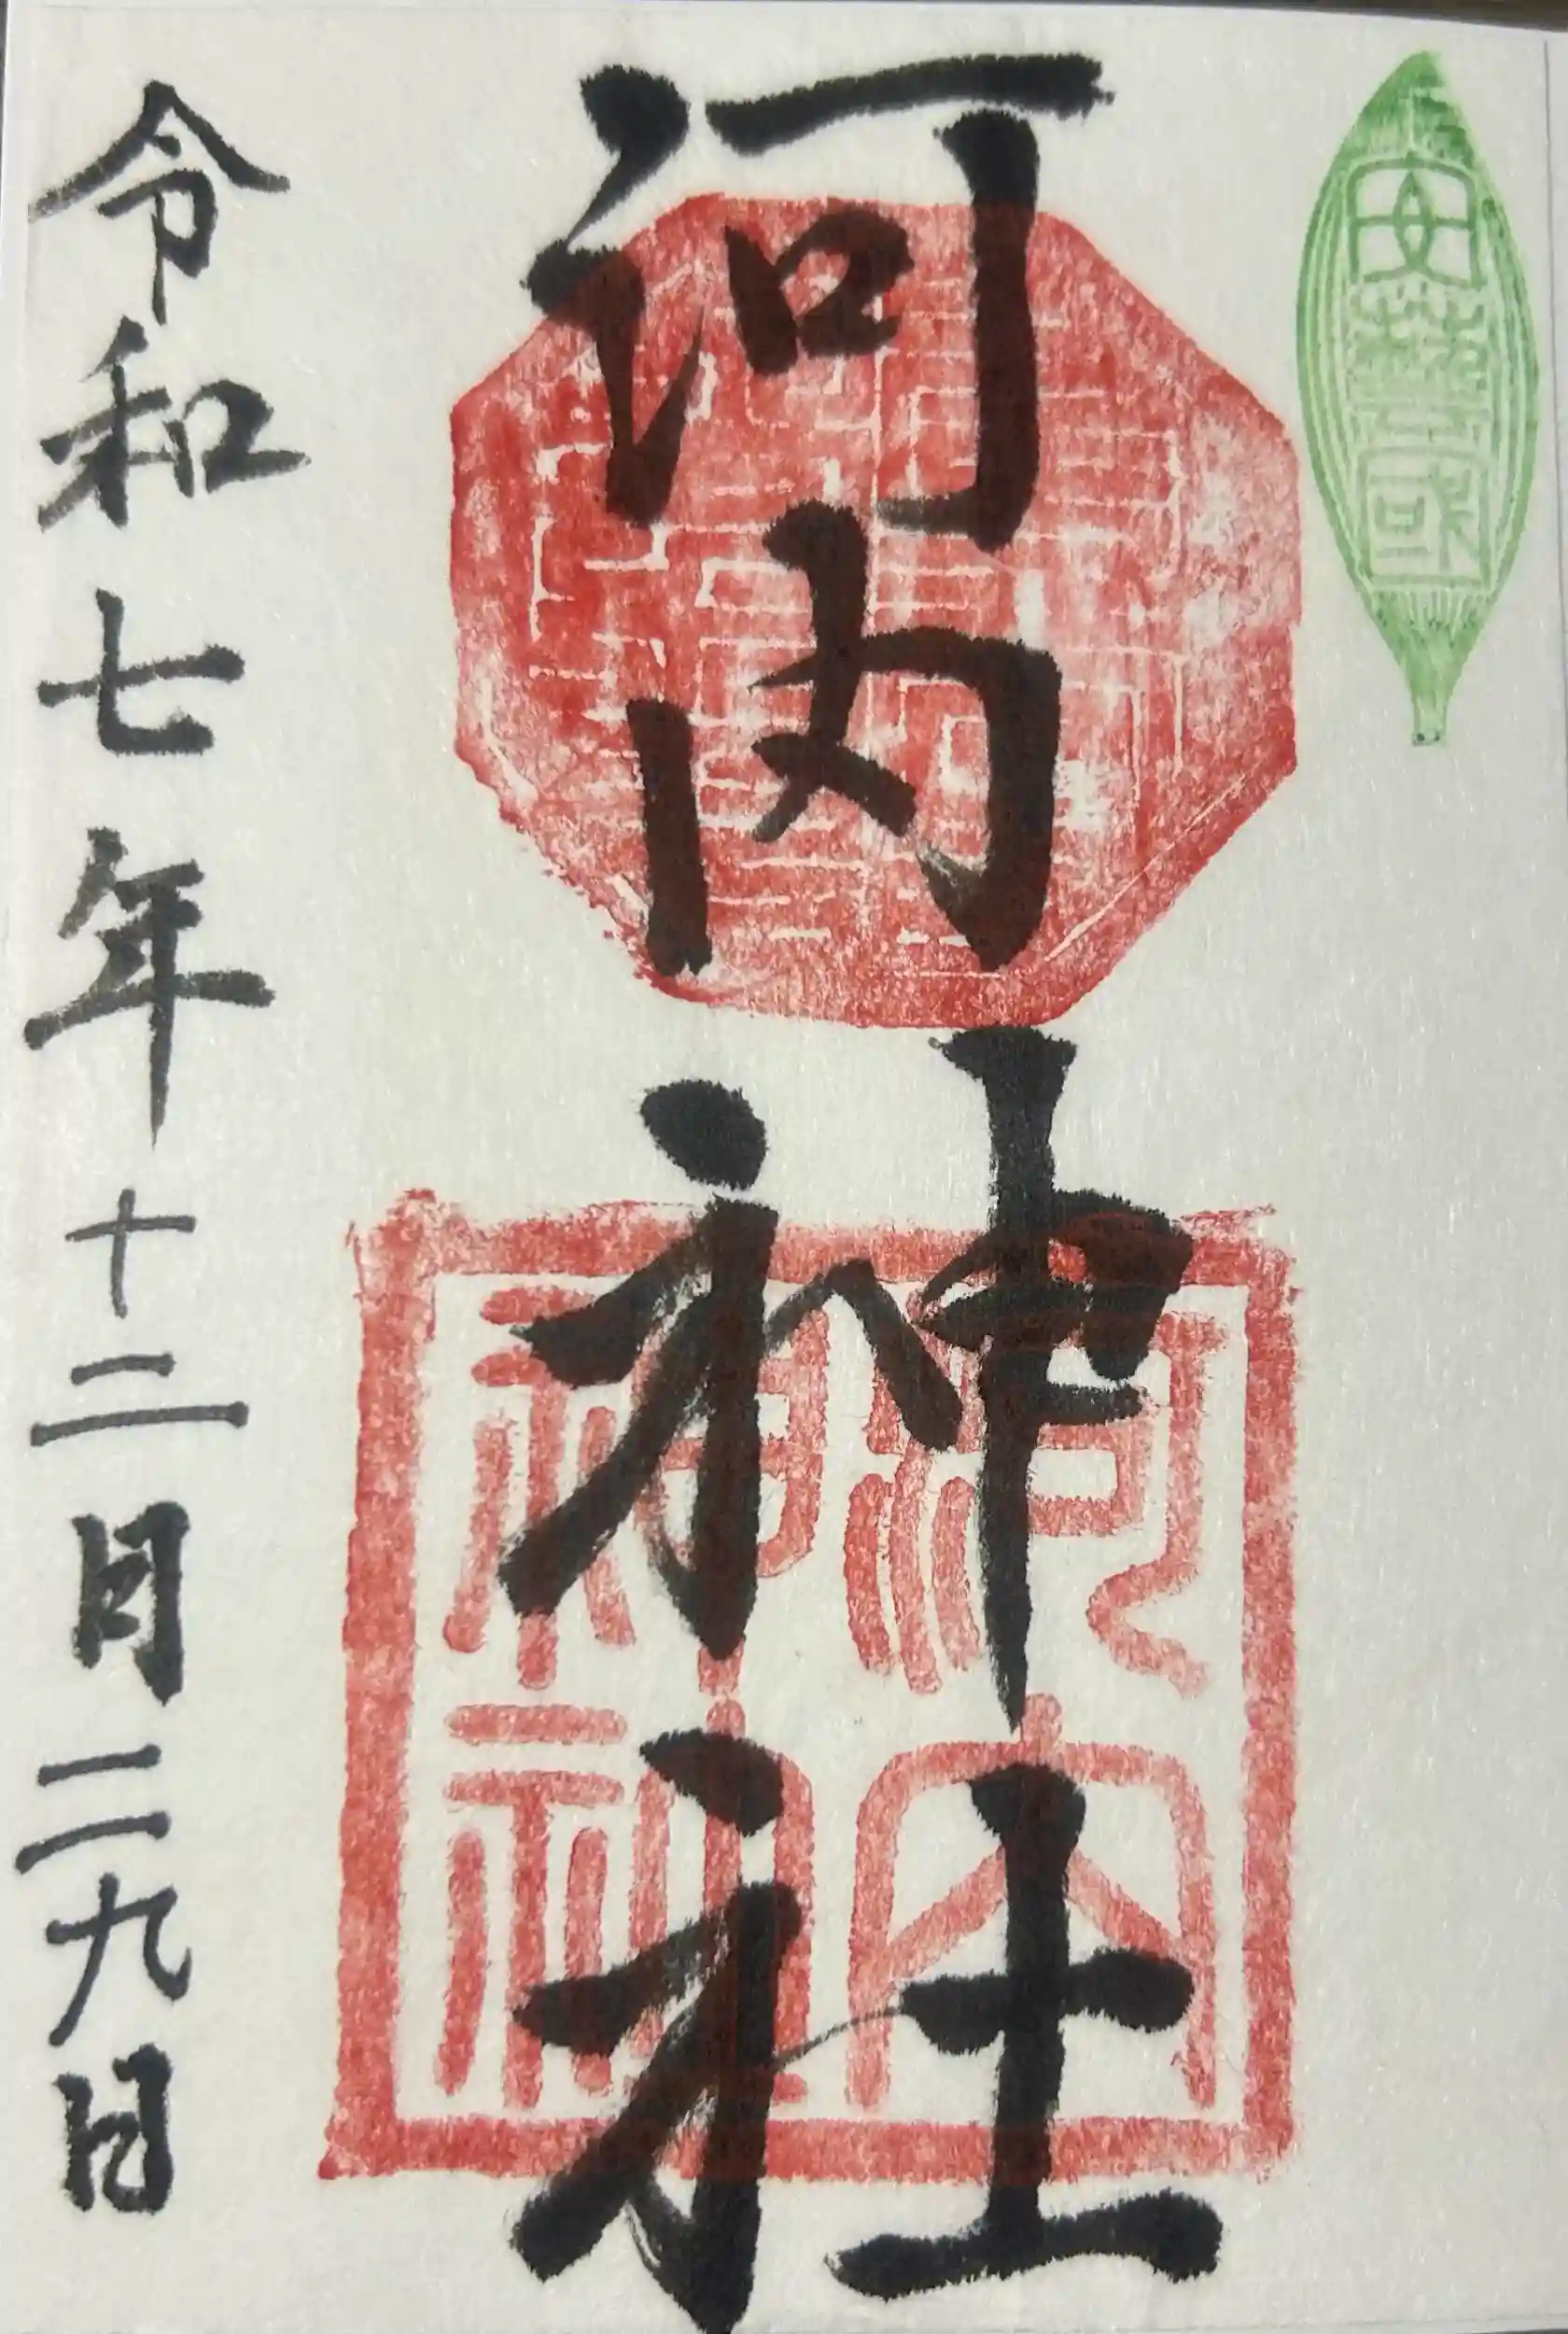 安藝國
河内神社
河内神社
令和七年十二月二九日